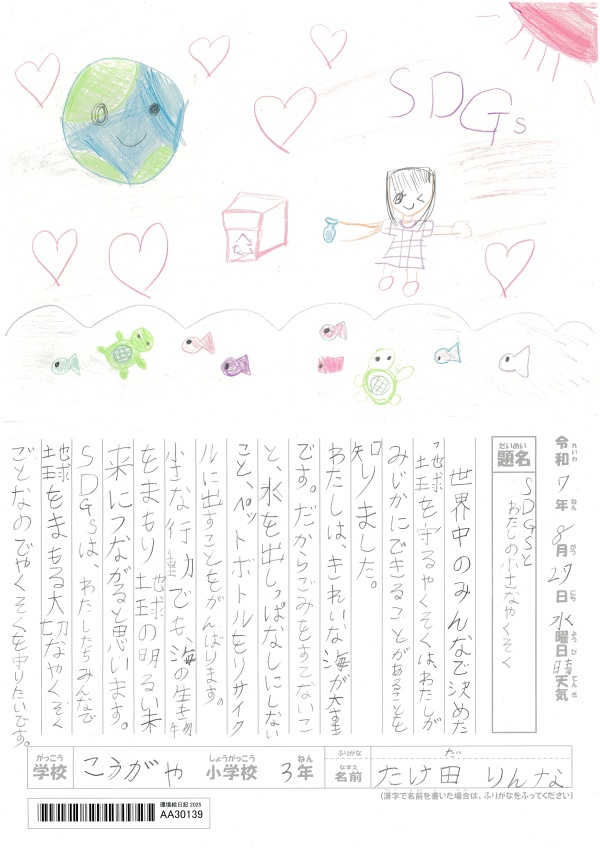 SDGs
令和7年8月27日水曜日晴天気
れいわ ねん がつ にち ようび てんき
だいめい
題名
SDGSと
わたしの小さなやくそく
世界中のみんなで決めた
「地球を守るやくそくは、わたしが
みじかにできることがあることを
知りました。
わたしは、きれいな海が大すき
です。だからごみをすてないこ
と、水を出しっぱなしにしない
こと、ペットボトルをリサイク
ルに出すことをがんばります。
小さな行動でも、海の生き物
をまもり地球の明るい未
来につながると思います。
SDGsは、わたしたちみんなで
地球をまもる大切なやくそく
ごとなのでやくそくを守りたいです。
がっこう
学校
こうがや
しょうがっこう
小学校
3年
ねん
ふりがな
だ
なまえ
名前
たけ田 りんな
(漢字で名前を書いた場合は、ふりがなをふってください)
環境絵日記 2025
AA30139